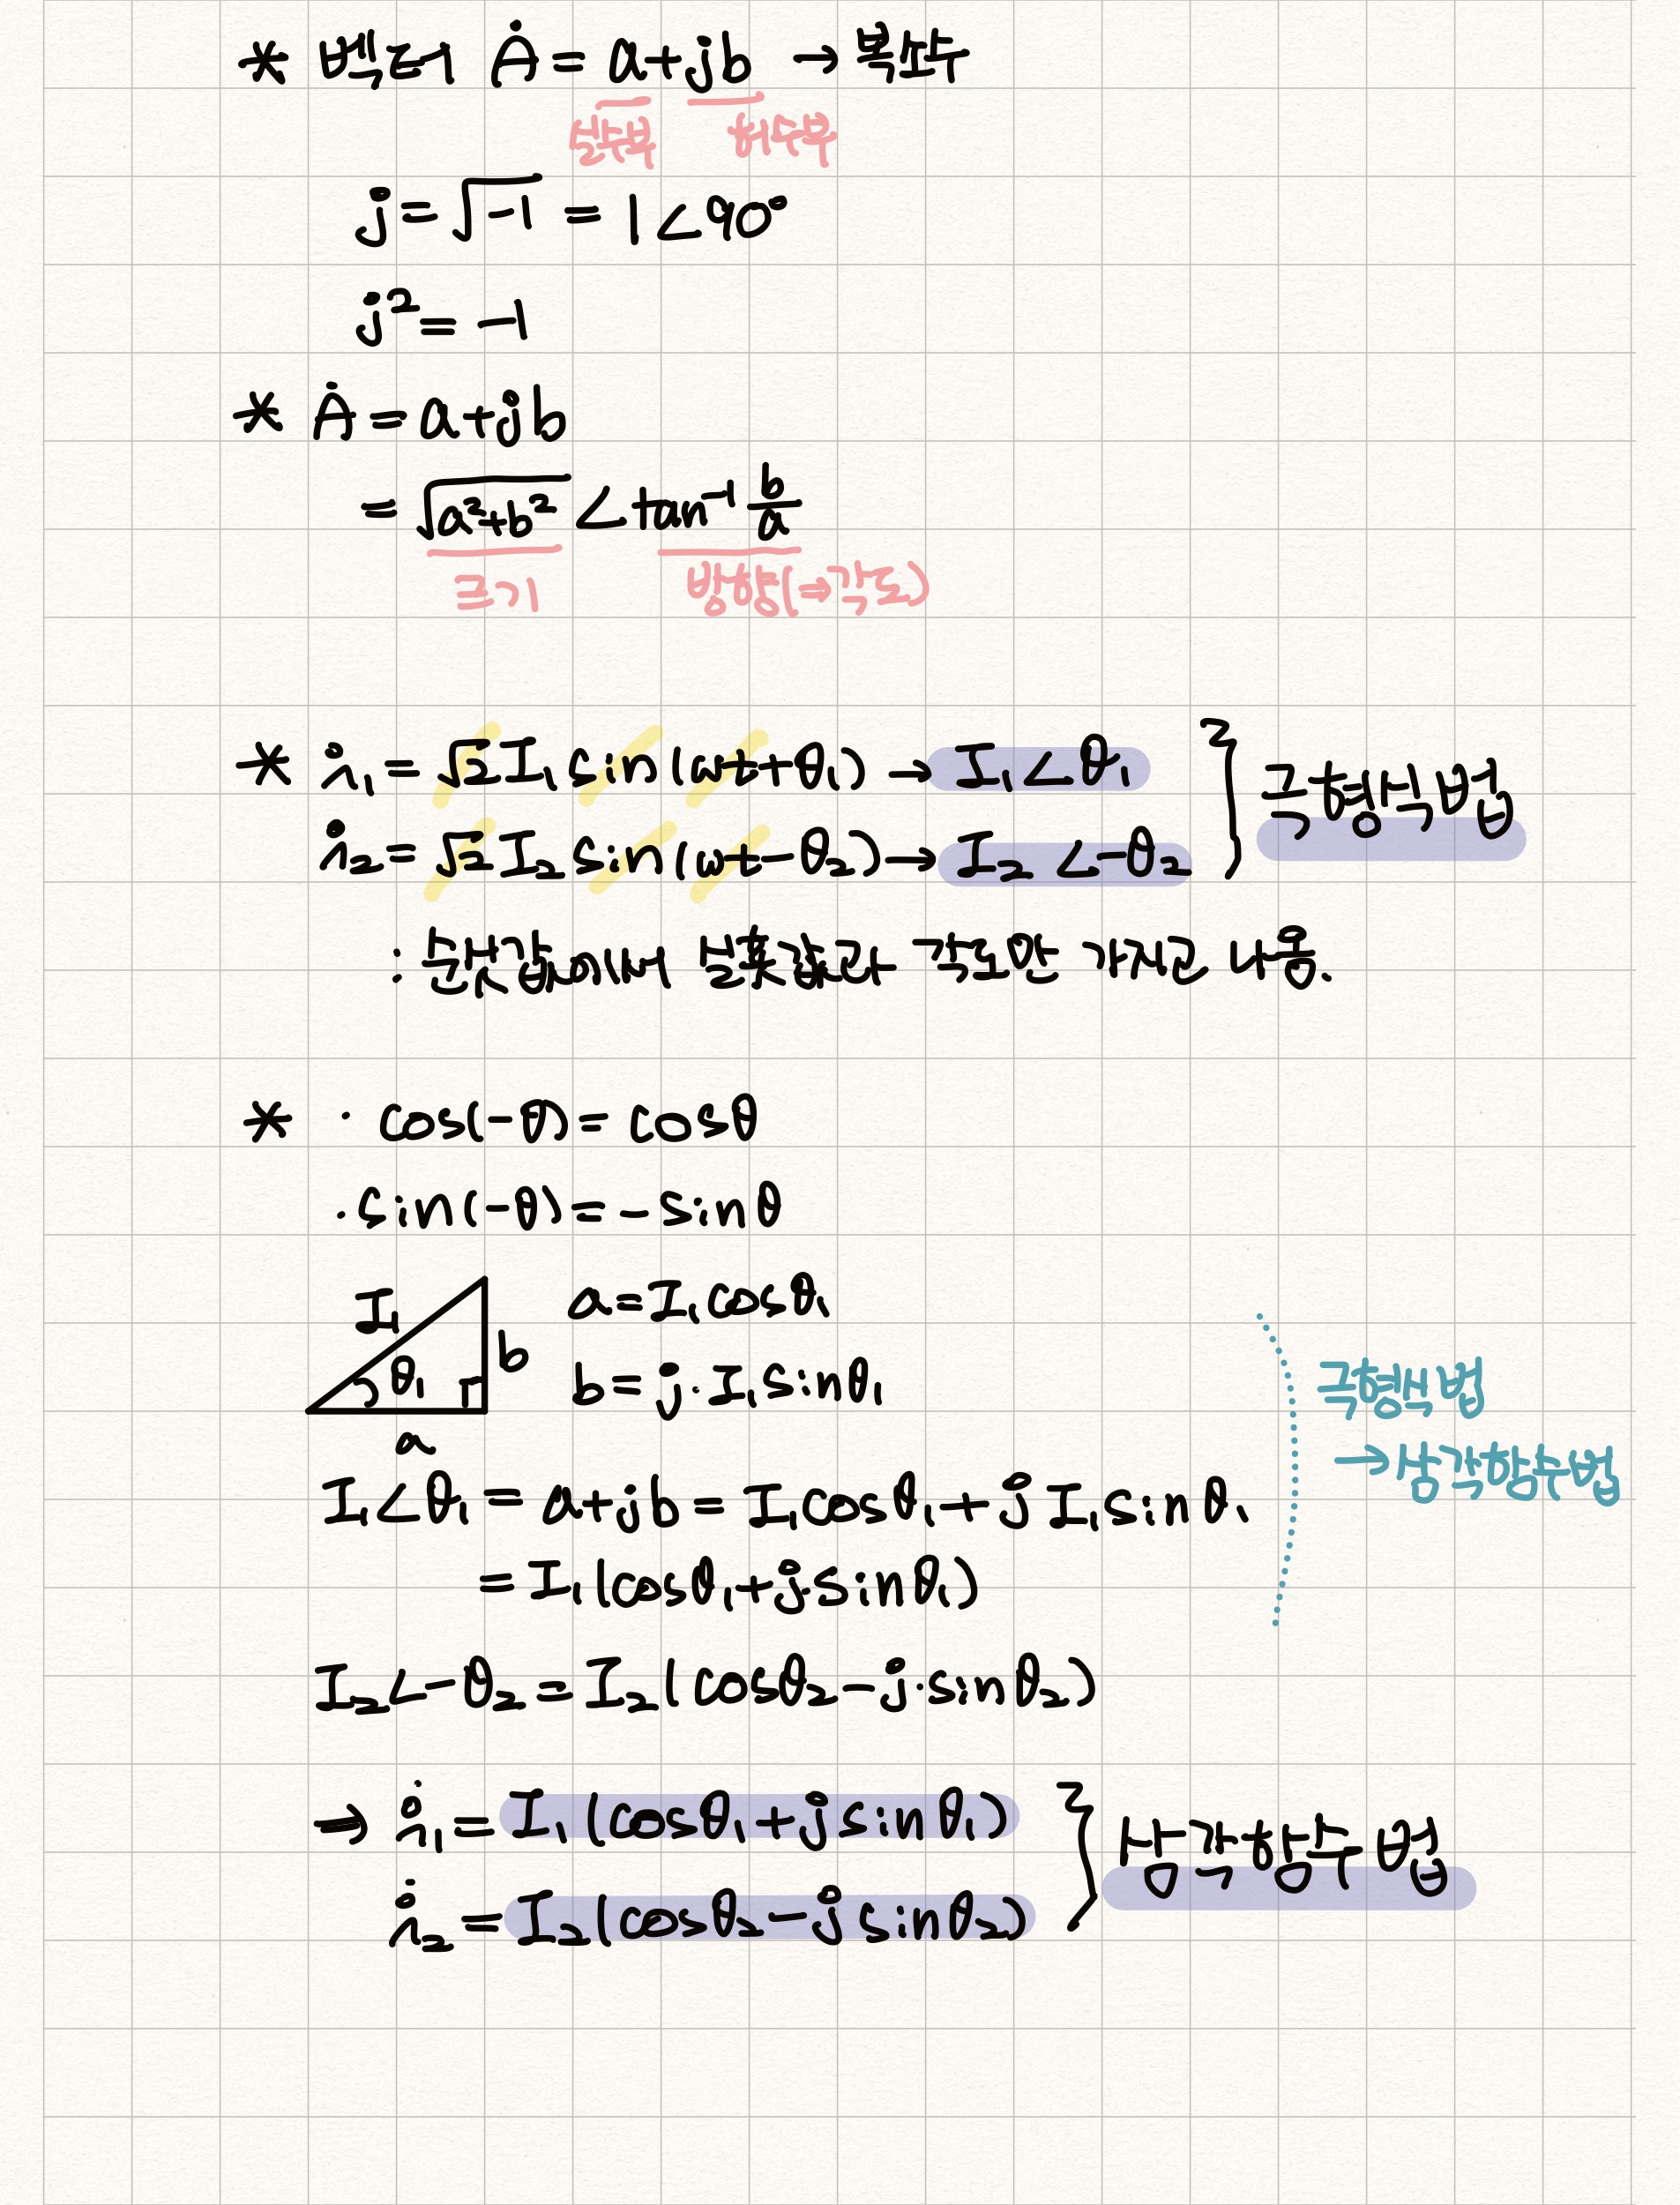 * 벡터 Ȧ = a+jb → 복소수
실수부 허수부
j = √-1 = 1∠90°
j² = -1
* Ȧ = a+jb
= √a²+b² ∠tan⁻¹ b/a
크기 방향(⇒각도)
* i₁ = √2 I₁ sin(ωt+θ₁) → I₁∠θ₁
i₂ = √2 I₂ sin(ωt-θ₂) → I₂ ∠-θ₂
극형식법
: 순싯값에서 실횻값과 각도만 가지고 나옴.
* · cos(-θ) = cosθ
· sin(-θ) = -sinθ
I₁ θ₁ b a
a = I₁cosθ₁
b = j·I₁sinθ₁
I₁∠θ₁ = a+jb = I₁cosθ₁+jI₁sinθ₁
= I₁(cosθ₁+j·sinθ₁)
극형식법
→삼각함수법
I₂∠-θ₂ = I₂(cosθ₂-j·sinθ₂)
⇒ i̇₁ = I₁(cosθ₁+jsinθ₁)
i̇₂ = I₂(cosθ₂-jsinθ₂)
삼각함수법